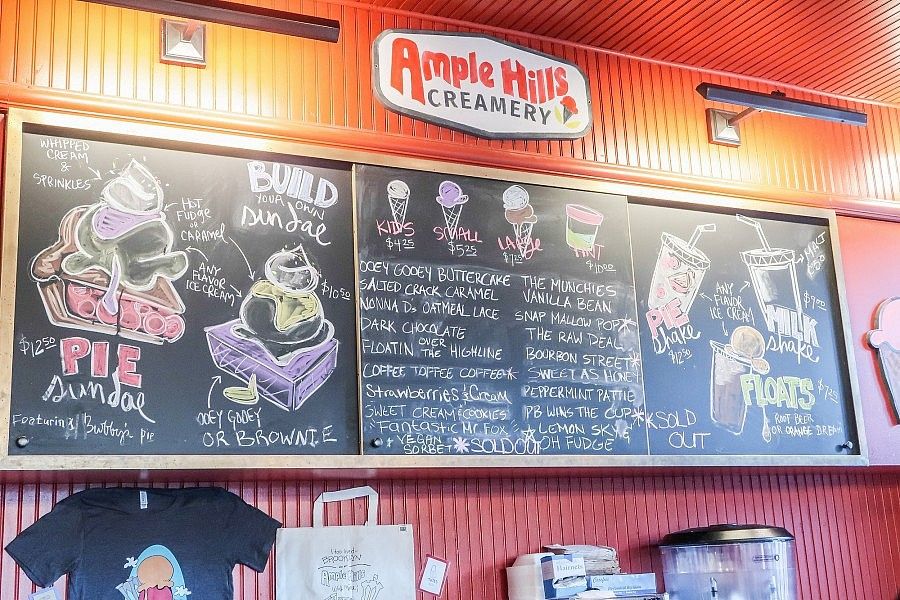 Ample Hills
CREAMERY
WHIPPED
CREAM
&
SPRINKLES
HOT
FUDGE
or
CARAMEL
ANY
FLAVOR
ICE CREAM
$12.50
PIE
Sundae
Featuring Bubby's pie
BUILD
YOUR OWN
Sundae
$10.50
OOEY GOOEY
OR BROWNIE
KIDS
$4.25
SMALL
$5.25
LARGE
PINT
$10.00
OOEY GOOEY BUTTERCAKE
SALTED CRACK CARAMEL
NONNA D's OATMEAL LACE
DARK CHOCOLATE
FLOATIN' OVER
THE HIGHLINE
COFFEE TOFFEE COFFEE*
Strawberries & Cream
SWEET CREAM & COOKIES
"Fantastic Mr. Fox
*VEGAN
SORBET
*SOLD OUT
THE MUNCHIES
VANILLA BEAN
SNAP MALLOW POP*
THE RAW DEAL
BOURBON STREET*
SWEET AS HONEY
PEPPERMINT PATTIE
PB WINS THE CUP
*LEMON SKY
OH FUDGE
PIE
Shake
$12.50
ANY
FLAVOR
ICE CREAM
MALT
$7.00
MILK
shake
FLOATS
ROOT BEER
OR ORANGE DREAM
*SOLD
OUT
BROOKLYN
Ample Hills
Hairnets